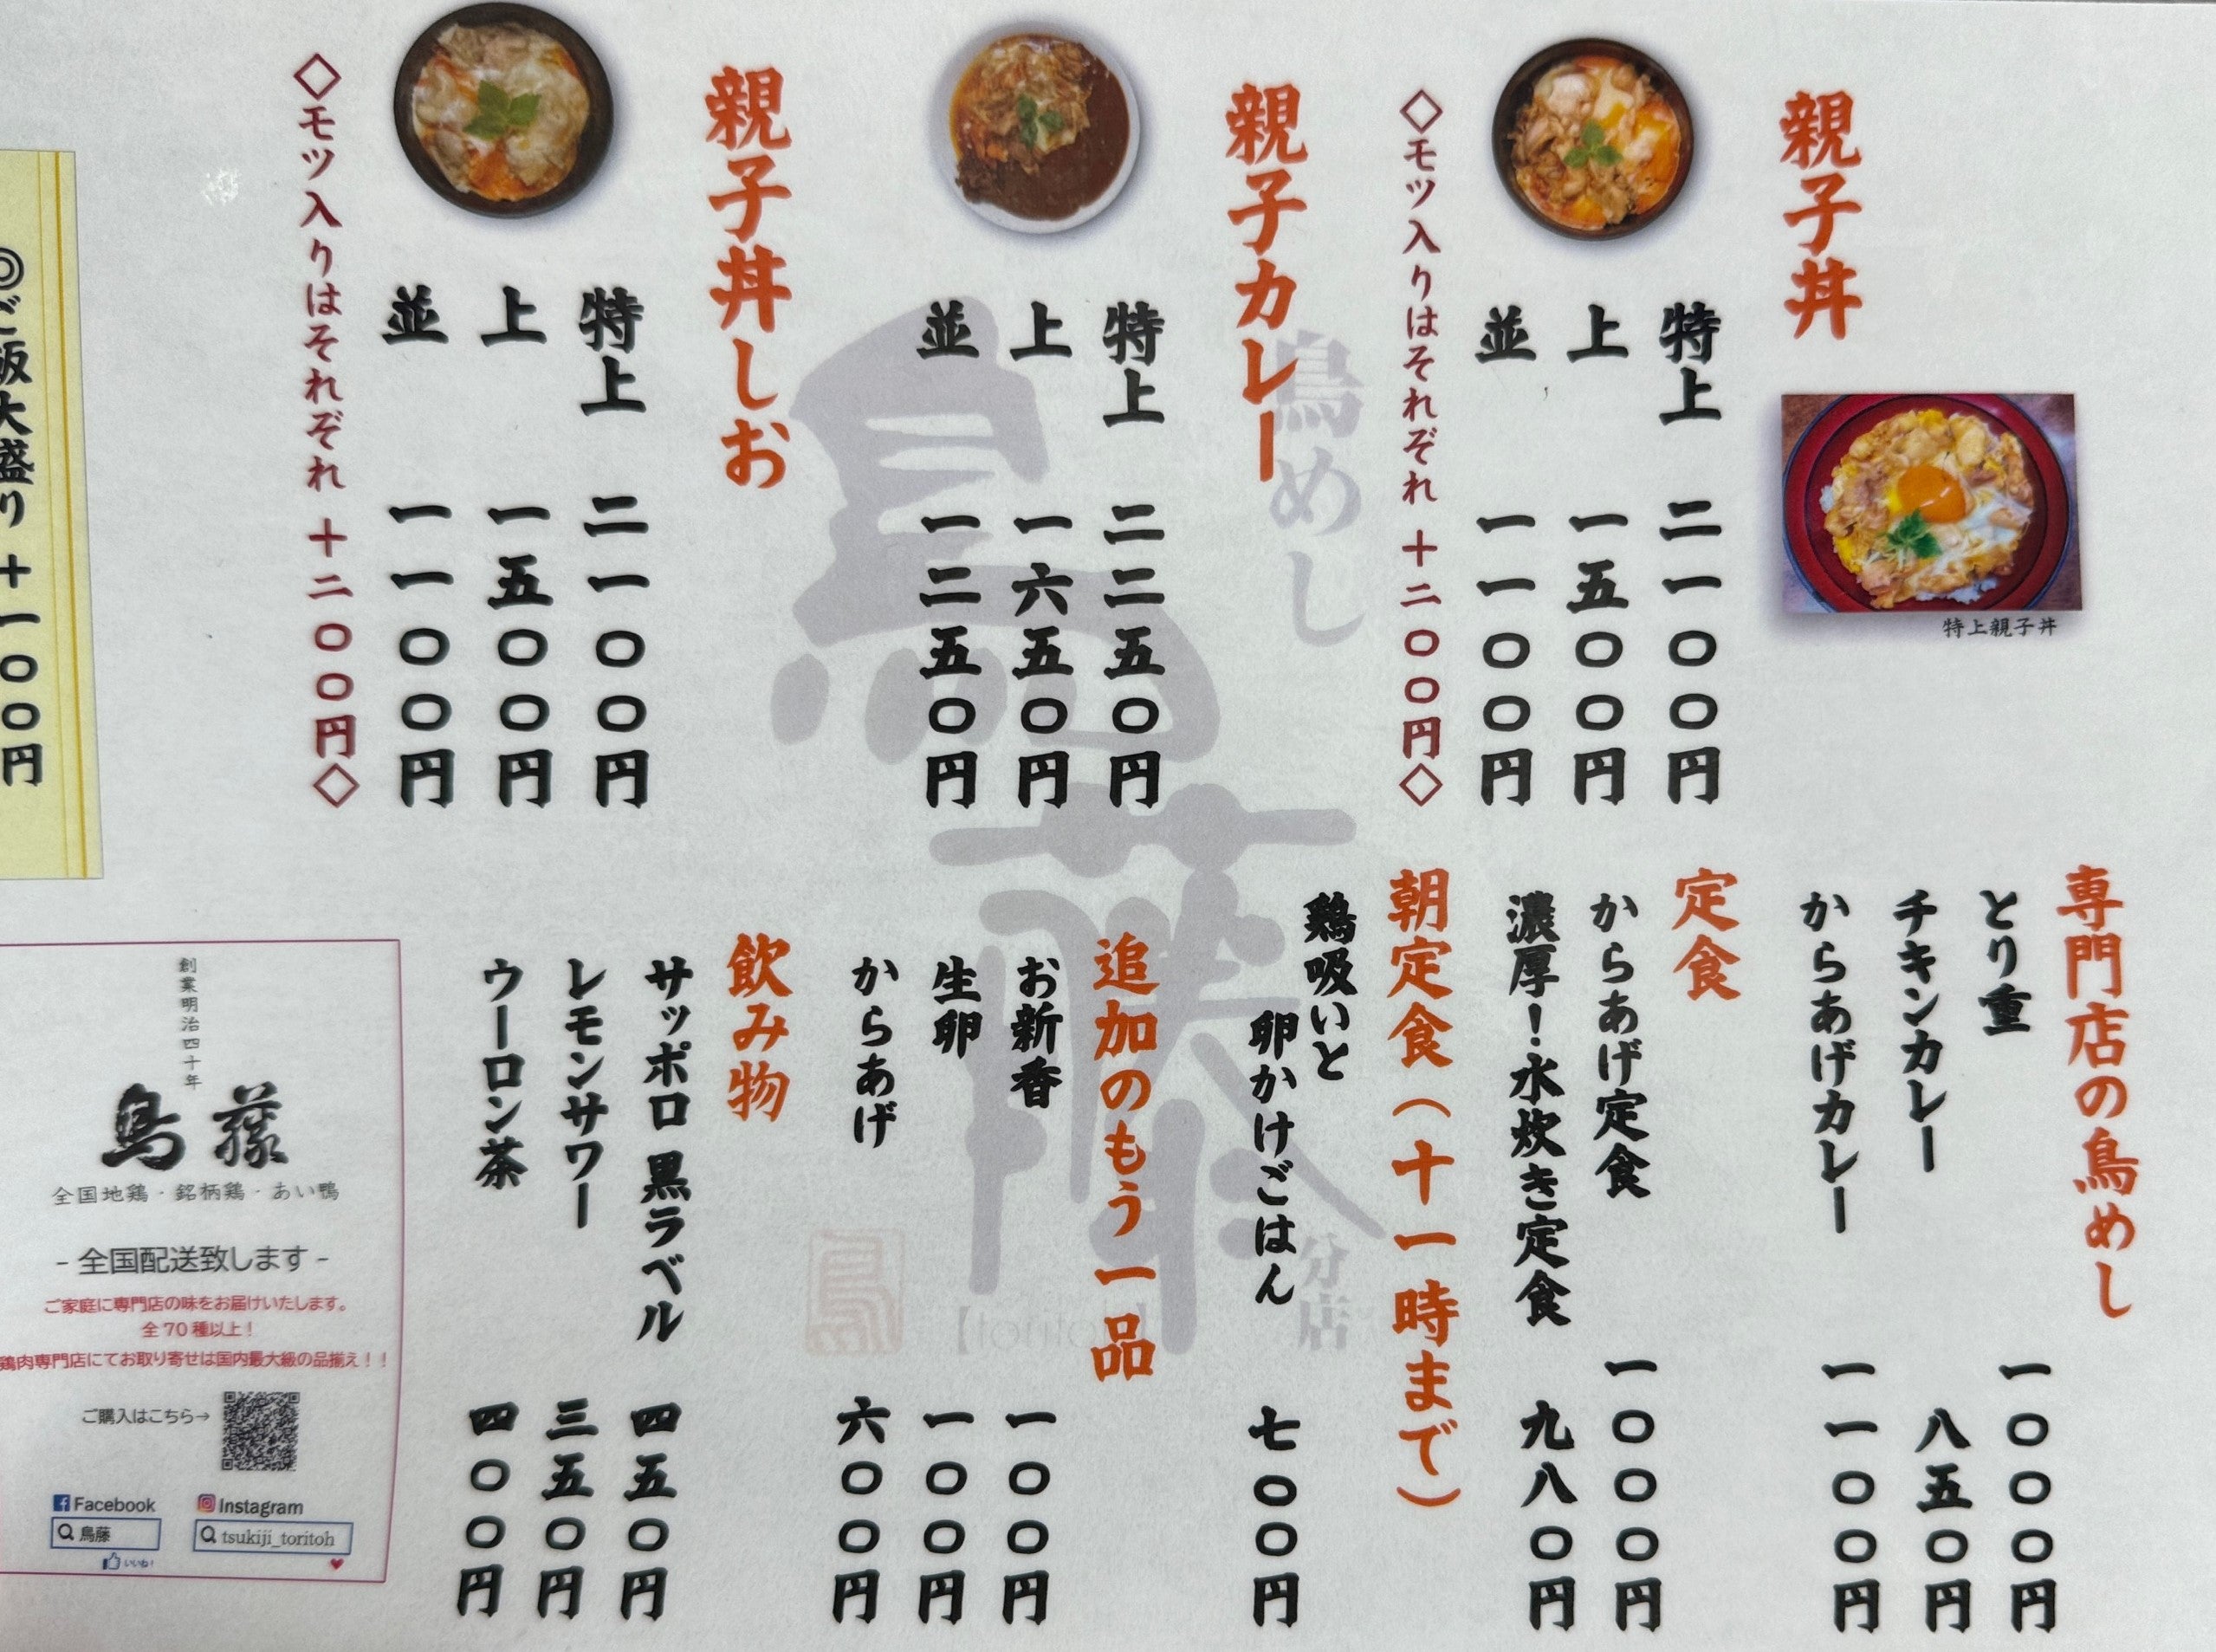 親子丼
特上親子丼
特上 二一〇〇円
上 一五〇〇円
並 一一〇〇円
◇モツ入りはそれぞれ 十二〇〇円◇
親子カレー
特上 二二五〇円
上 一六五〇円
並 一二五〇円
親子丼しお
特上 二一〇〇円
上 一五〇〇円
並 一一〇〇円
◇モツ入りはそれぞれ 十二〇〇円◇
◎ご飯大盛り+一〇〇円
専門店の鳥めし
とり重 一〇〇〇円
チキンカレー 八五〇円
からあげカレー 一一〇〇円
定食
からあげ定食 一〇〇〇円
濃厚！水炊き定食 九八〇円
朝定食（十一時まで）
鶏吸いと
卵かけごはん 七〇〇円
追加のもう一品
お新香 一〇〇円
生卵 一〇〇円
からあげ 六〇〇円
飲み物
サッポロ 黒ラベル 四五〇円
レモンサワー 三五〇円
ウーロン茶 四〇〇円
鳥めし
鳥藤
分店
鳥
創業明治四十年
鳥藤
全国地鶏・銘柄鶏・あい鴨
- 全国配送致します -
ご家庭に専門店の味をお届けいたします。
全70種以上！
鶏肉専門店にてお取り寄せは国内最大級の品揃え！！
ご購入はこちら→
Facebook
鳥藤
いいね!
Instagram
tsukiji_toritoh